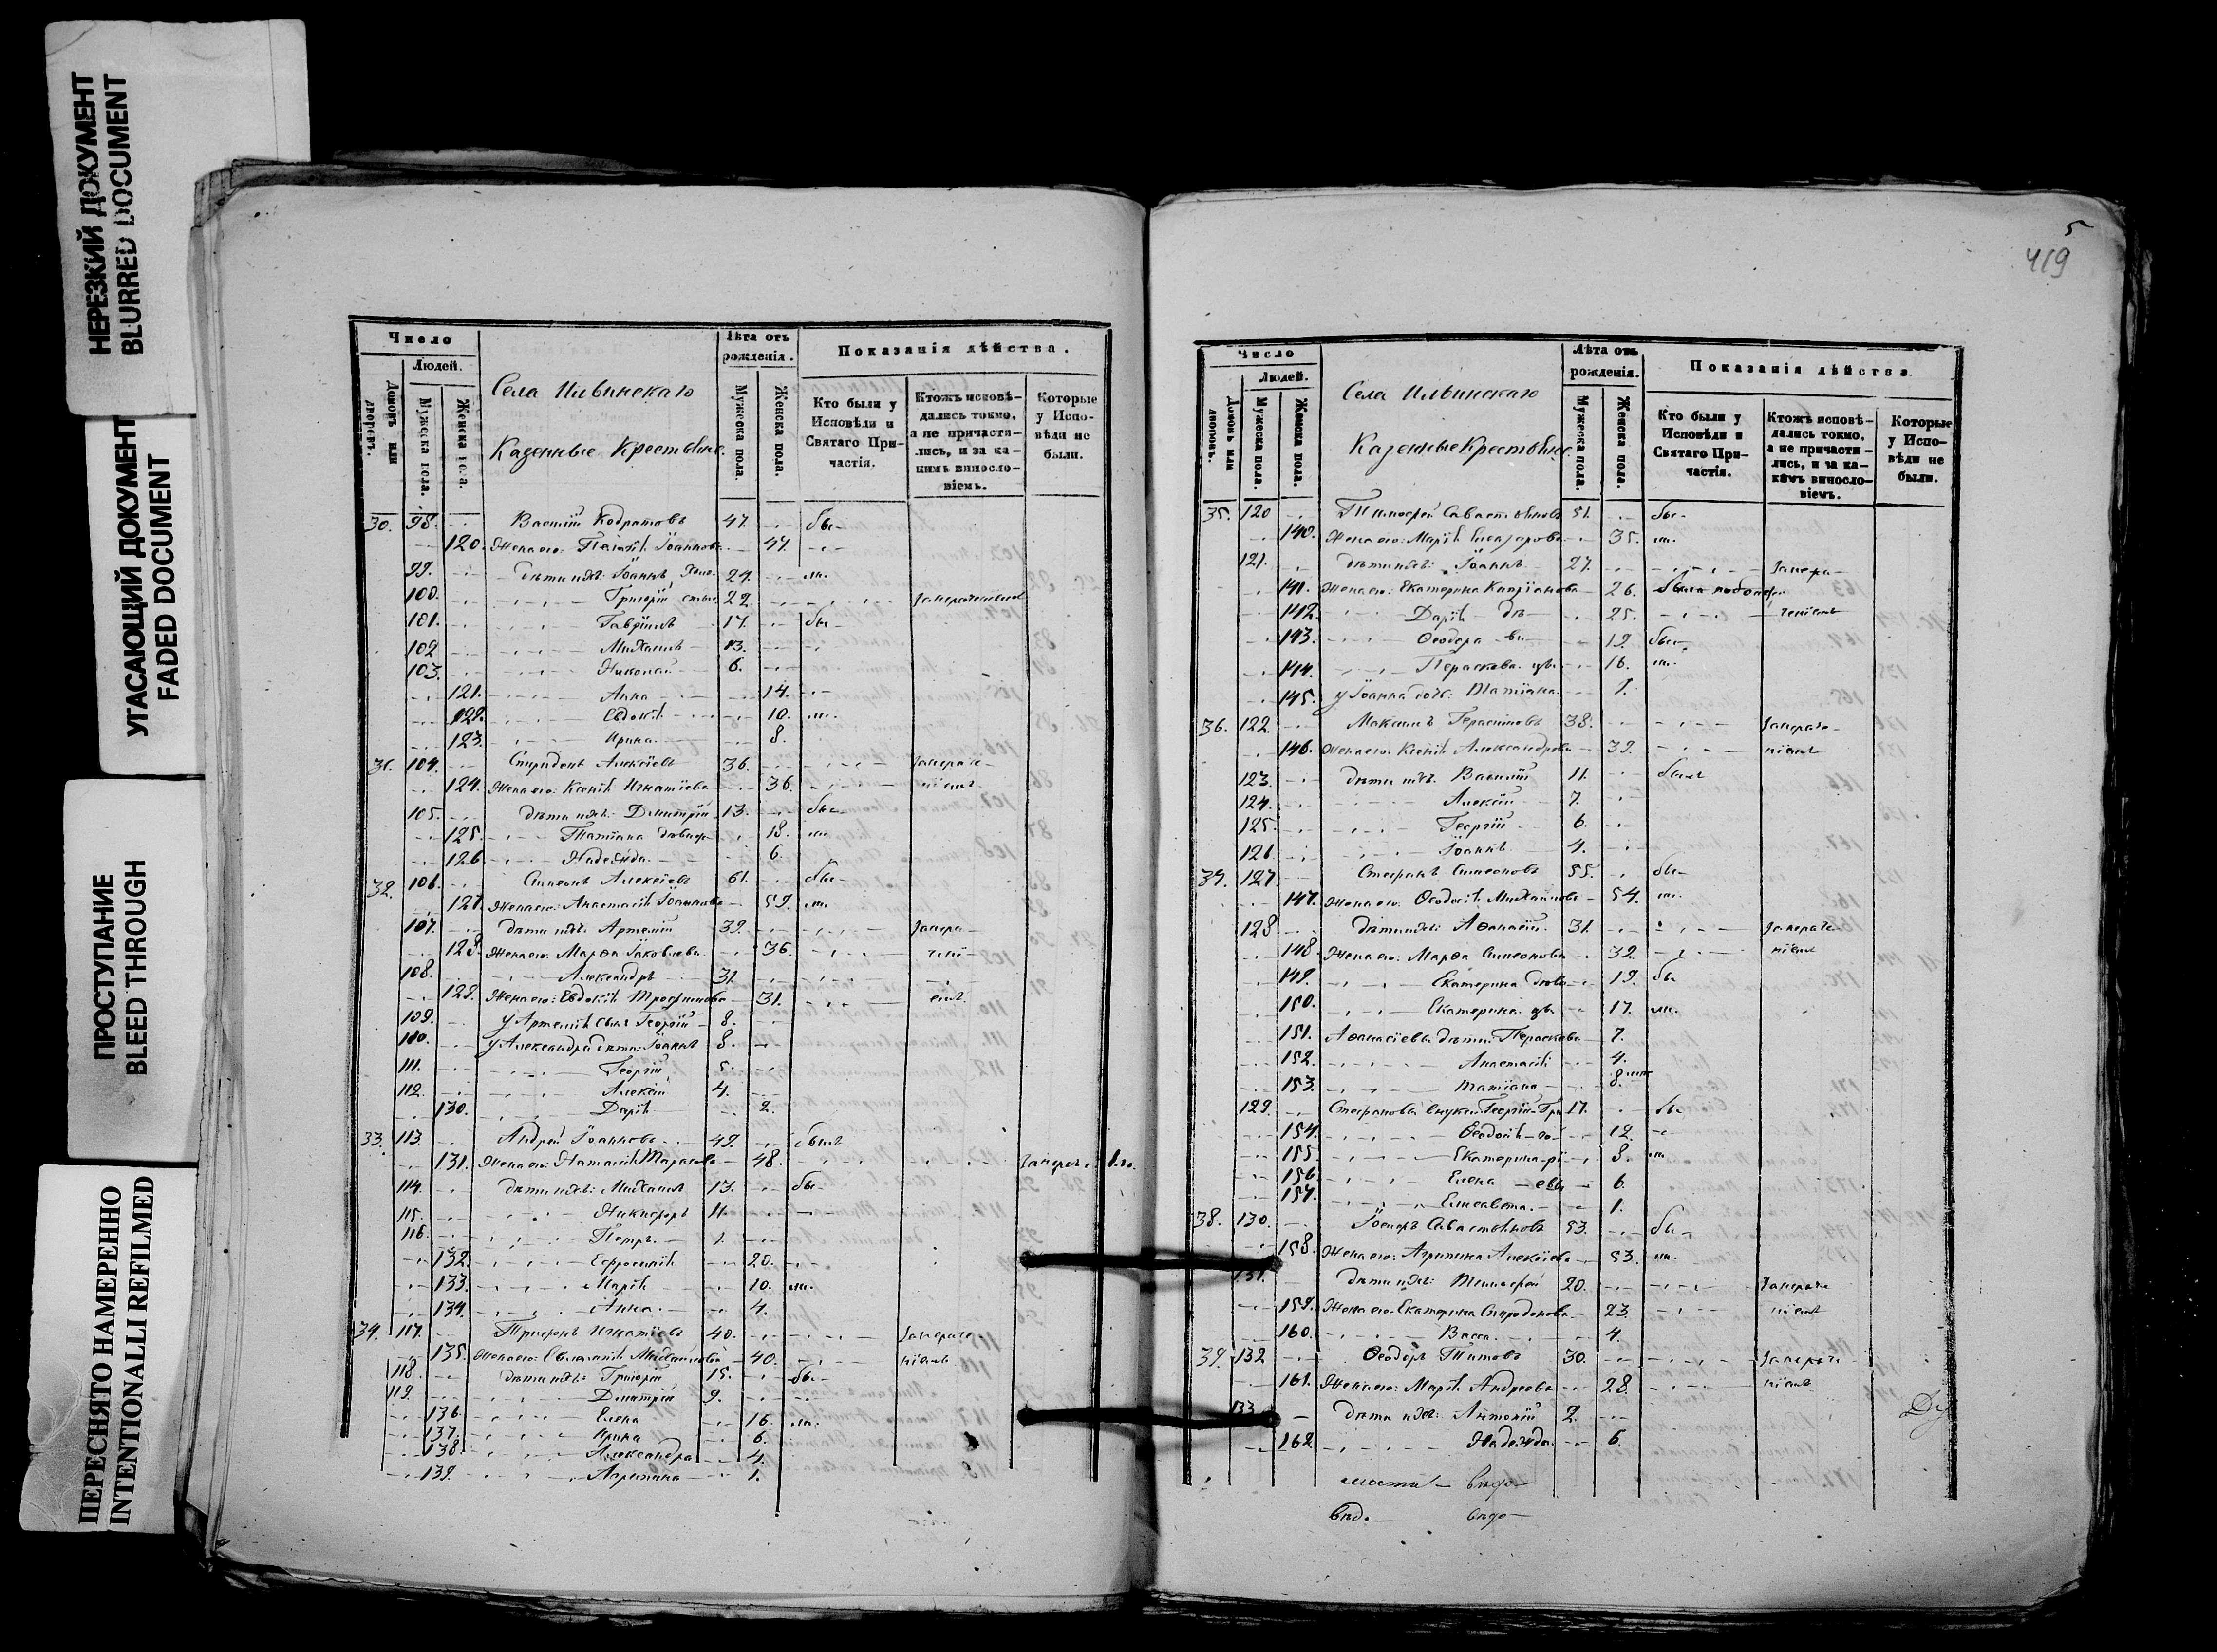 НЕРЕЗКИЙ ДОКУМЕНТ
BLURRED DOCUMENT
УГАСАЮЩИЙ ДОКУМЕНТ
FADED DOCUMENT
ПРОСТУПАНИЕ
BLEED THROUGH
ПЕРЕСНЯТО НАМЕРЕННО
INTENTIONALLI REFILMED
Число
Людей.
Домовъ или дворовъ.
Мужеска пола.
Женска пола.
Села Ильинскаго
Казенные Крестьяне.
Лѣта отъ рожденія.
Мужеска пола.
Женска пола.
Показанія дѣйства.
Кто были у Исповѣди и Святаго Причастія.
Ктожъ исповѣдались токмо, а не причастились, и за какимъ винословіемъ.
Которые у Исповѣди не были.
30. 98. Василій Кодратовъ 47. бы-
120. Жена его: Іоаннова 47.
99. дѣти ихъ: Іоаннъ 24. ли.
100. Григорій 22.
101. Гавріилъ 17. бы-
102. Михаилъ 13.
103. Николай 6.
121. Анна 14.
122. Евдокія 10. ли.
123. Ирина 8.
31. 104. Спиридонъ Алексіевъ 36.
124. Жена его: Ксенія Игнатіева 36. ніемъ
105. дѣти ихъ: Димитрій 13. бы-
125. Татіана 18. ли
126. Надежда 6.
32. 106. Симеонъ Алексіевъ 61. бы-
127. Жена его: Анастасія Іоаннова 59. ли.
107. дѣти ихъ: Артемій 39.
128. Жена его: Марѳа Іаковлева 36.
108. Александръ 31.
129. Жена его: Евдокія Трофимова 31.
109. у Артемія сынъ Георгій 8.
110. у Александра дѣти: Іоаннъ 8.
111. Георгій 5.
112. Алексій 4.
130. Дарія 2.
33. 113. Андрей Іоанновъ 49. былъ
131. Жена его: Наталія Тарасова 48.
114. дѣти ихъ: Михаилъ 13. бы-
115. Никифоръ 11.
116. Петръ 1.
132. Ефросинія 20.
133. Марія 10. ли.
134. Анна 4.
34. 117. Трифонъ Игнатіевъ 40.
135. Жена его: Михаилова 40. ніемъ
118. дѣти ихъ: Григорій 15. бы-
119. Димитрій 9.
136. Елена 16. ли.
137. Ирина 6.
138. Александра 4.
139. Агрипина 1.
5
419
Число
Людей.
Домовъ или дворовъ.
Мужеска пола.
Женска пола.
Села Ильинскаго
Казенные Крестьяне
Лѣта отъ рожденія.
Мужеска пола.
Женска пола.
Показанія дѣйства.
Кто были у Исповѣди и Святаго Причастія.
Ктожъ исповѣдались токмо, а не причастились, и за какимъ винословіемъ.
Которые у Исповѣди не были.
35. 120 Тимофей Савастьяновъ 51. бы-
140. Жена его: Марія Елеазарова 35. ли.
121. дѣти ихъ: Іоаннъ 27.
141. Жена его: Екатерина Капріанова 26.
142. Дарія 25.
143. Ѳеодора 19. бы-
144. Пераскева 16. ли.
145. у Іоанна дочь: Татіана 1.
36. 122. Максимъ Герасимовъ 38.
146. Жена его: Ксенія Александрова 39. ніемъ
123. дѣти ихъ: Василій 11. былъ
124. Алексій 7.
125. Георгій 6.
126. Іоаннъ 4.
37. 127. Стефанъ Симеоновъ 55. бы-
147. Жена его: Ѳеодосія Михаилова 54. ли.
128 дѣти ихъ: Аѳанасій 31.
148. Жена его: Марѳа Симеонова 32. ніемъ
149. Екатерина 19. бы
150. Екатерина 17. ли.
151. Аѳанасіевы дѣти: Пераскева 7.
152. Анастасія 4.
153. Татіана 8.
129. Стефановы внуки: Георгій 17. бы
154. Ѳеодосія 12.
155. Екатерина 8. ли
156. Елена 6.
157. Елисавета 1.
38. 130. Савастьяновъ 53. бы-
158. Жена его: Агрипина Алексіева 53. ли.
131. дѣти ихъ: Тимофей 20.
159. Жена его: Екатерина Спиридонова 23. ніемъ
160. Васса 4.
39. 132 Ѳеодоръ Титовъ 30.
161. Жена его: Марія Андреева 28. ніемъ
133 дѣти ихъ: Антоній 2.
162 Надежда 6.